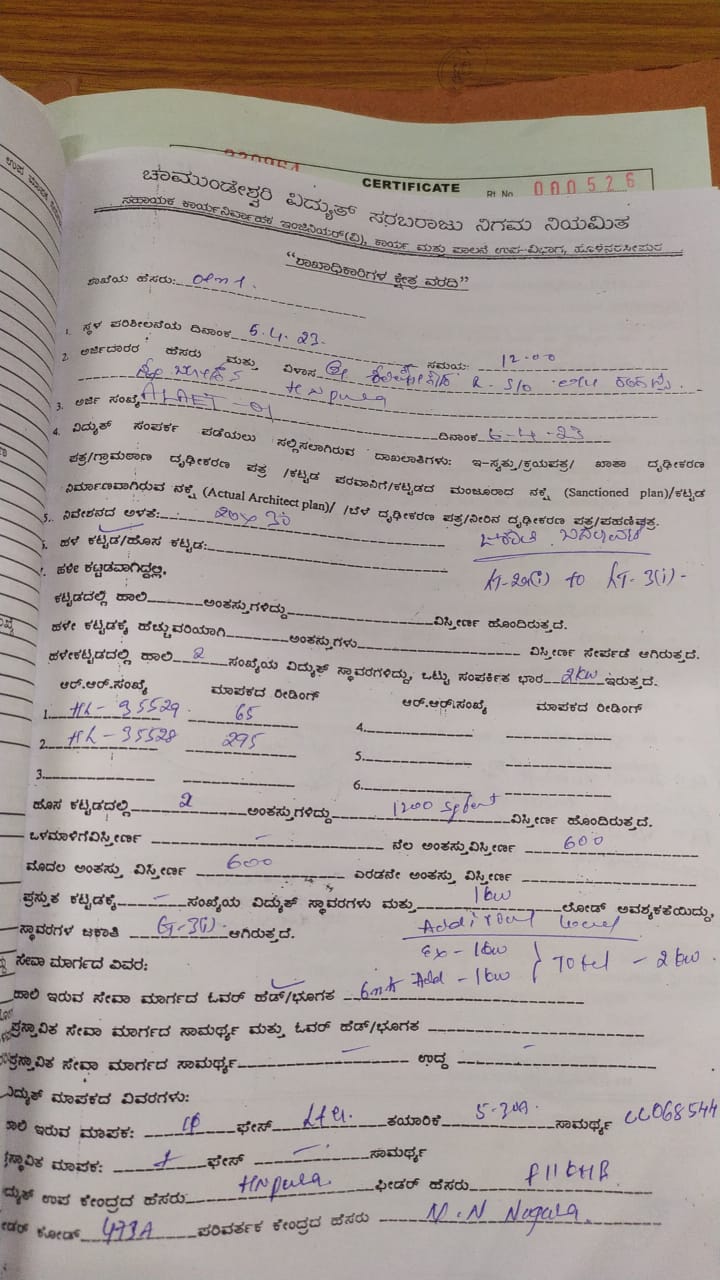 CERTIFICATE Rt No 000526
ಚಾಮುಂಡೇಶ್ವರಿ ವಿದ್ಯುತ್ ಸರಬರಾಜು ನಿಗಮ ನಿಯಮಿತ
ಸಹಾಯಕ ಕಾರ್ಯನಿರ್ವಾಹಕ ಇಂಜಿನಿಯರ್(ವಿ), ಕಾರ್ಯ ಮತ್ತು ಪಾಲನೆ ಉಪ-ವಿಭಾಗ, ಹೊಳೆನರಸೀಪುರ
"ಶಾಖಾಧಿಕಾರಿಗಳ ಕ್ಷೇತ್ರ ವರದಿ"
ಶಾಖೆಯ ಹೆಸರು:
1. ಸ್ಥಳ ಪರಿಶೀಲನೆಯ ದಿನಾಂಕ 5.4.23 ಸಮಯ: 12.00
2. ಅರ್ಜಿದಾರರ ಹೆಸರು ಮತ್ತು ವಿಳಾಸ
HNpura
3. ಅರ್ಜಿ ಸಂಖ್ಯೆ ದಿನಾಂಕ 5-4-23
4. ವಿದ್ಯುತ್ ಸಂಪರ್ಕ ಪಡೆಯಲು ಸಲ್ಲಿಸಲಾಗಿರುವ ದಾಖಲಾತಿಗಳು: ಇ-ಸ್ವತ್ತು/ಕ್ರಯಪತ್ರ/ ಖಾತಾ ದೃಢೀಕರಣ
ಪತ್ರ/ಗ್ರಾಮಠಾಣ ದೃಢೀಕರಣ ಪತ್ರ /ಕಟ್ಟಡ ಪರವಾನಿಗೆ/ಕಟ್ಟಡದ ಮಂಜೂರಾದ ನಕ್ಷೆ (Sanctioned plan)/ಕಟ್ಟಡ
ನಿರ್ಮಾಣವಾಗಿರುವ ನಕ್ಷೆ (Actual Architect plan)/ /ಬೆಳೆ ದೃಢೀಕರಣ ಪತ್ರ/ನೀರಿನ ದೃಢೀಕರಣ ಪತ್ರ/ಪಹಣಿಪತ್ರ.
5.. ನಿವೇಶನದ ಅಳತೆ: 20x30
ಹಳೆ ಕಟ್ಟಡ/ಹೊಸ ಕಟ್ಟಡ: ಜಕಾತಿ ಬದಲಾವಣೆ
ಹಳೇ ಕಟ್ಟಡವಾಗಿದ್ದಲ್ಲಿ, LT-2a(i) to LT-3(i)-
ಕಟ್ಟಡದಲ್ಲಿ ಹಾಲಿ ಅಂತಸ್ತುಗಳಿದ್ದು ವಿಸ್ತೀರ್ಣ ಹೊಂದಿರುತ್ತದೆ.
ಹಳೇ ಕಟ್ಟಡಕ್ಕೆ ಹೆಚ್ಚುವರಿಯಾಗಿ ಅಂತಸ್ತುಗಳು ವಿಸ್ತೀರ್ಣ ಸೇರ್ಪಡೆ ಆಗಿರುತ್ತದೆ.
ಹಳೇಕಟ್ಟಡದಲ್ಲಿ ಹಾಲಿ 2 ಸಂಖ್ಯೆಯ ವಿದ್ಯುತ್ ಸ್ಥಾವರಗಳಿದ್ದು, ಒಟ್ಟು ಸಂಪರ್ಕಿತ ಭಾರ 2kw ಇರುತ್ತದೆ.
ಆರ್.ಆರ್.ಸಂಖ್ಯೆ ಮಾಪಕದ ರೀಡಿಂಗ್ ಆರ್.ಆರ್.ಸಂಖ್ಯೆ ಮಾಪಕದ ರೀಡಿಂಗ್
1. HL-35529 65 4.
2. HL-35528 295 5.
3. 6.
ಹೊಸ ಕಟ್ಟಡದಲ್ಲಿ 2 ಅಂತಸ್ತುಗಳಿದ್ದು 1200 ವಿಸ್ತೀರ್ಣ ಹೊಂದಿರುತ್ತದೆ.
ಒಳಮಾಳಿಗೆವಿಸ್ತೀರ್ಣ - ನೆಲ ಅಂತಸ್ತುವಿಸ್ತೀರ್ಣ 600
ಮೊದಲ ಅಂತಸ್ತು ವಿಸ್ತೀರ್ಣ 600 ಎರಡನೇ ಅಂತಸ್ತು ವಿಸ್ತೀರ್ಣ
ಪ್ರಸ್ತುತ ಕಟ್ಟಡಕ್ಕೆ - ಸಂಖ್ಯೆಯ ವಿದ್ಯುತ್ ಸ್ಥಾವರಗಳು ಮತ್ತು 1kw ಲೋಡ್ ಅವಶ್ಯಕತೆಯಿದ್ದು,
ಸ್ಥಾವರಗಳ ಜಕಾತಿ LT-3(i) ಆಗಿರುತ್ತದೆ. Additional load
ಸೇವಾ ಮಾರ್ಗದ ವಿವರ: Ex-1kw
ಹಾಲಿ ಇರುವ ಸೇವಾ ಮಾರ್ಗದ ಓವರ್ ಹೆಡ್/ಭೂಗತ Add-1kw } Total - 2kw.
ಪ್ರಸ್ತಾವಿತ ಸೇವಾ ಮಾರ್ಗದ ಸಾಮರ್ಥ್ಯ ಮತ್ತು ಓವರ್ ಹೆಡ್/ಭೂಗತ
ಪ್ರಸ್ತಾವಿತ ಸೇವಾ ಮಾರ್ಗದ ಸಾಮರ್ಥ್ಯ - ಉದ್ದ -
ವಿದ್ಯುತ್ ಮಾಪಕದ ವಿವರಗಳು:
ಹಾಲಿ ಇರುವ ಮಾಪಕ: 1φ ಫೇಸ್ L&G. ತಯಾರಿಕೆ 5-30A. ಸಾಮರ್ಥ್ಯ CC068544
ಪ್ರಸ್ತಾವಿತ ಮಾಪಕ: ಫೇಸ್ ಸಾಮರ್ಥ್ಯ
ವಿದ್ಯುತ್ ಉಪ ಕೇಂದ್ರದ ಹೆಸರು HNpura ಫೀಡರ್ ಹೆಸರು F11 KHB
ಫೀಡರ್ ಕೋಡ್ 473A ಪರಿವರ್ತಕ ಕೇಂದ್ರದ ಹೆಸರು M.N Nagara.